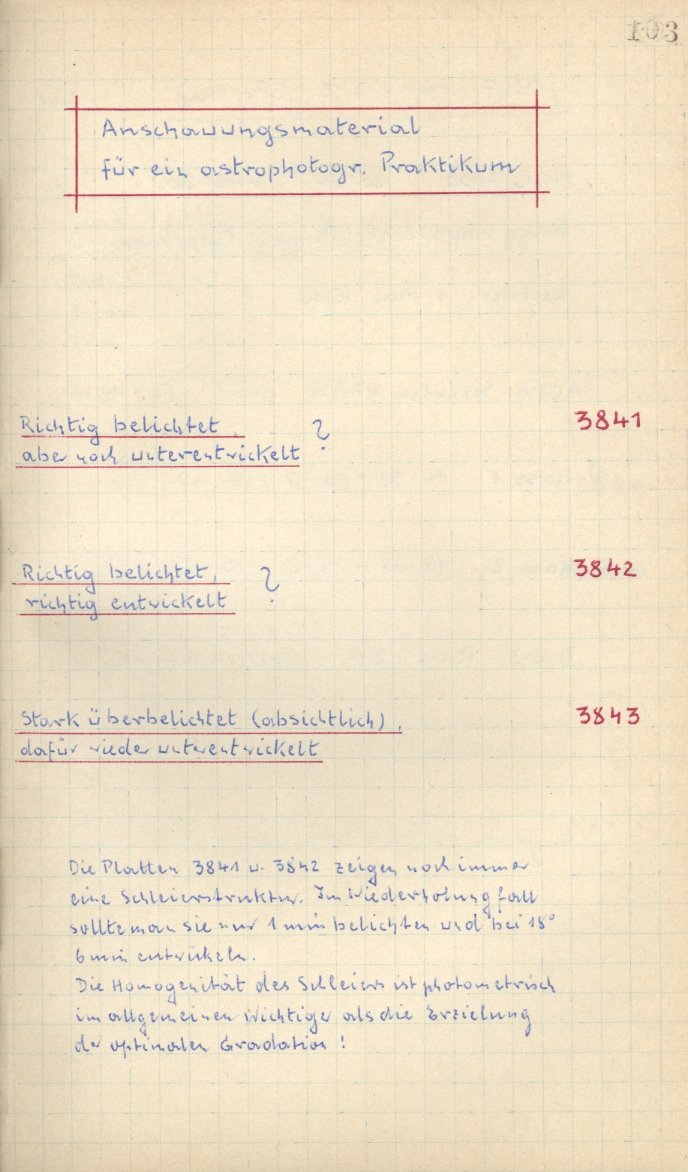 103
Anschauungsmaterial
für ein astrophotogr. Praktikum
Richtig belichtet, ? 3841
aber noch unterentwickelt
Richtig belichtet, ? 3842
richtig entwickelt
Stark überbelichtet (absichtlich), 3843
dafür wieder unterentwickelt
Die Platten 3841 u. 3842 zeigen noch immer
eine Schleierstruktur. Im Wiederholungsfall
sollte man sie nur 1 min belichten und bei 18°
6 min entwickeln.
Die Homogenität des Schleiers ist photometrisch
im allgemeinen wichtiger als die Erzielung
der optimalen Gradation!